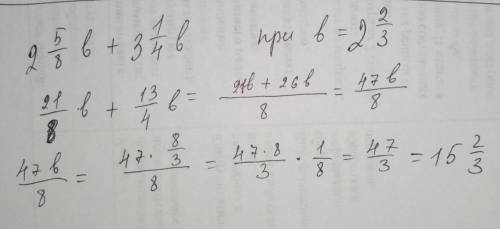 2 5/8 b + 3 1/4 b при b = 2 2/3
21/8 b + 13/4 b = (21b + 26b)/8 = 47b/8
47b/8 = (47 · 8/3)/8 = (47 · 8)/3 · 1/8 = 47/3 = 15 2/3